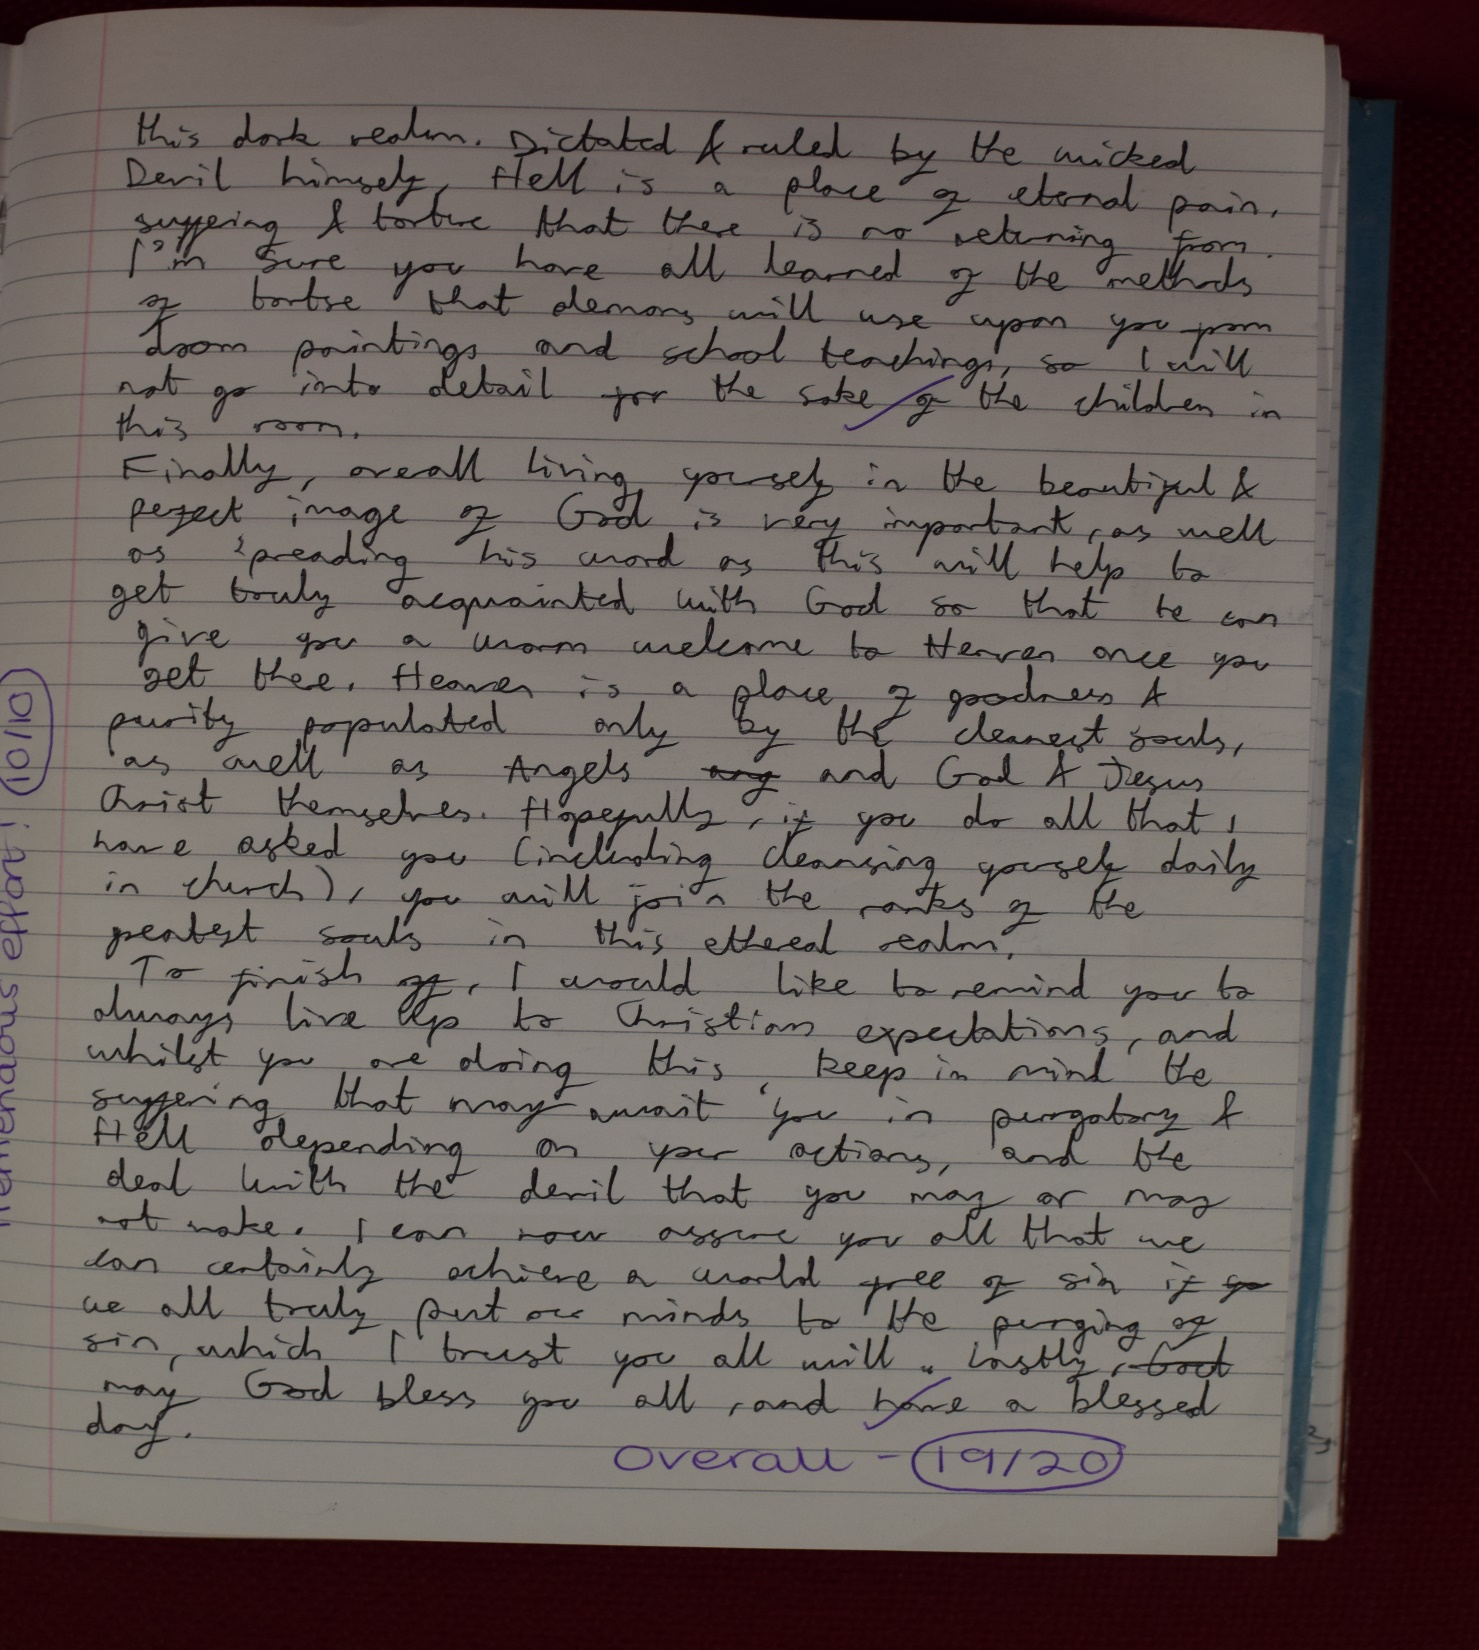 this dark realm. Dictated & ruled by the wicked
Devil himself, Hell is a place of eternal pain,
suffering & tortue that there is no returning from.
I'm sure you have all learned of the methods
of tortue that demons will use upon you from
doom paintings and school teachings, so I will
not go into detail for the sake of the children in
this room.
Finally, overall living yourself in the beautiful &
perfect image of God is very important, as well
as spreading his word as this will help to
get truly acquainted with God so that he can
give you a warm welcome to Heaven once you
get there. Heaven is a place of goodness &
purity populated only by the cleanest souls,
as well as Angels ang and God & Jesus
Christ themselves. Hopefully, if you do all that I
have asked you (including cleansing yourself daily
in church), you will join the ranks of the
greatest souls in this ethereal realm.
To finish off, I would like to remind you to
always live up to Christian expectations, and
whilst you are doing this, keep in mind the
suffering that may await you in purgatory &
Hell depending on your actions, and the
deal with the devil that you may or may
not make. I can now assure you all that we
can certainly achieve a world free of sin if yo
we all truly put our minds to the purging of
sin, which I trust you all will. Lastly, God
may God bless you all, and have a blessed
day.
Overall - 19/20
Tremendous effort! 10/10